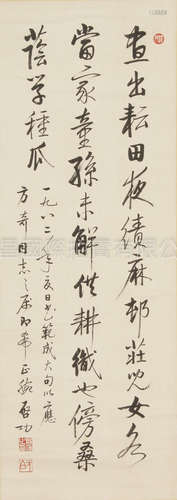 晝出耘田夜績麻邨莊兒女各
當家童孫未解供耕織也傍桑
蔭学種瓜
一九八二 範成大句以應
方奇同志之屬即希正 啓功